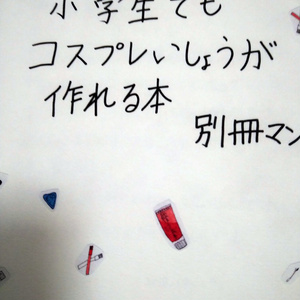 小学生でも
コスプレいしょうが
作れる本
別冊マン